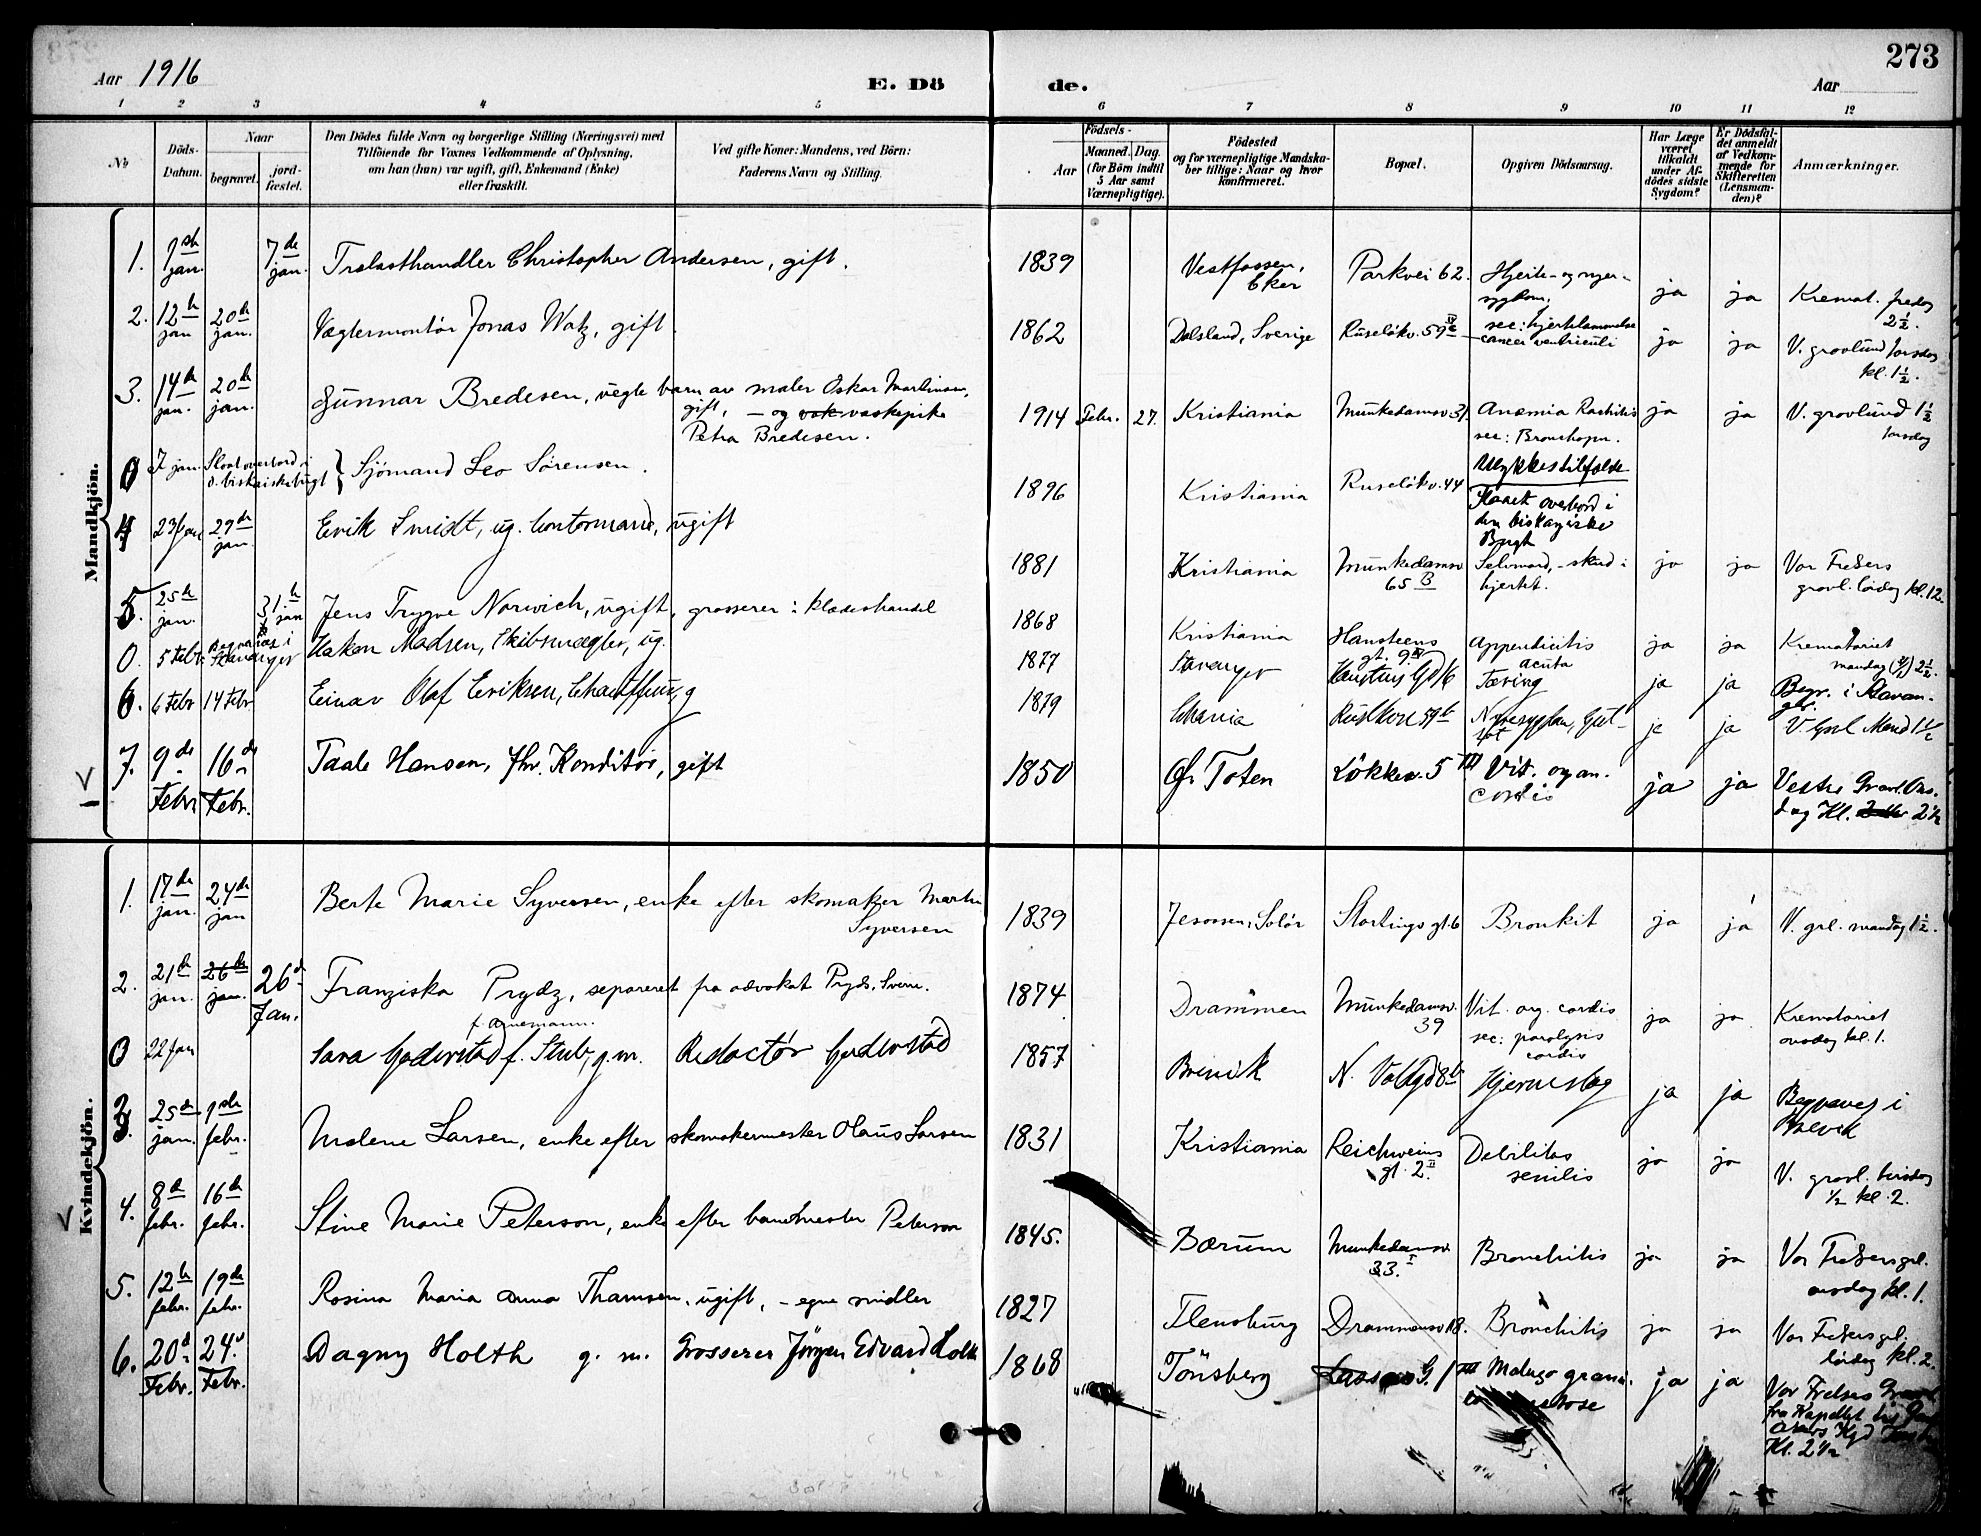 273
Aar 1916
E. Dö
de.
Aar
1 2 3 4 5 6 7 8 9 10 11 12
No
Döds-Datum.
Naar
begravet.
jord-fæstet.
Den Dödes fulde Navn og borgerlige Stilling (Næringsvei) med
Tilföiende for Voxnes Vedkommende af Oplysning,
om han (hun) var ugift, gift, Enkemand (Enke)
eller fraskilt.
Ved gifte Koner: Mandens, ved Börn:
Faderens Navn og Stilling.
Födsels-
Aar
Maaned. Dag.
(for Börn indtil
5 Aar samt
Værnepligtige).
Födested
og for værnepligtige Mandska-
ber tillige: Naar og hvor
konfirmeret.
Bopæl.
Opgiven Dödsaarsag.
Har Læge
været
tilkaldt
under Af-
dödes sidste
Sygdom?
Er Dödsfal-
det anmeldt
af Vedkom-
mende for
Skifteretten
(Lensman-
den)?
Anmærkninger.
Mandkjön.
1. 1st jan. 7de jan. Trælasthandler Christopher Andersen, gift. 1839 Vestfossen, Eker Parkvei 62. Hjerte- og nyresygdom. ja ja Kremat. fredag 2½.
2. 12te jan 20de jan. Vægtermontör Jonas Watz, gift. 1862 Dalsland, Sverige Ruselökv. 59 sec: hjertelammelse cancer ventriculi ja ja V. gravlund torsdag kl. 1½.
3. 14de jan. 20de jan. Gunnar Bredesen, uegte barn av maler Oskar Martinsen,
gift, – og vaskepike
Petra Bredesen. 1914 Febr. 27. Kristiania Munkedamsv 31. Anæmia Rachitis sec: Bronchopn. ja ja V. gravlund 1½ torsdag
0 7 jan. Slaat overbord i d. biskaiskebugt } Sjömand Leo Sörensen. 1896 Kristiania Ruselökv. 44 Ulykkestilfælde Slaaet overbord i den biskayiske Bugt
4 23 jan 29de jan Erik Smidt, ug. Contormand, ugift 1881 Kristiania Munkedamsv 65 B Selvmord, – skud i hjertet. ja ja Vor Frelsers gravl. lördag kl. 12.
5. 25de jan. 31te jan Jens Trygve Norwich, ugift, grosserer i klædeshandel 1868 Kristiania Hansteens gt. 9 Appendicitis acuta ja ja Krematoriet mandag 2½.
0. 5 Febr. Begraves i Stavanger Hakon Madsen, Skibsmægler, ug. 1877 Stavanger Tæring ja ja Begr. i Stavanger.
6. 6 Febr 14 Febr. Einar Olaf Eriksen, Chauffeur, g 1879 Chania Nyresygdom, ja ja
7. 9de Febr 16de Febr. Taale Hansen, fhv. Konditor, gift 1850 Ø. Toten Lökkev. 5 III Vit. organ. cordis ja ja Vestre Gravl. Onsdag Kl. 2½
Kvindekjön.
1. 17de jan. 24de jan Berte Marie Syversen, enke efter skomaker Martin
Syversen 1839 Solör Stortings gt. 6 Bronkit ja ja V. grl. mandag 1½.
2. 21de jan. 26de jan. 26de Jan. Franziska Prydz, separeret fra advokat Prydz,
f. Arnemann. 1874 Drammen Munkedamsv. 39 Vit. org. cordis sec: paralysis cordis ja ja Krematoriet onsdag kl. 1.
0 22 Jan Sara Gjederstad f. Stub, g. m. Redactör Gjederstad 1857 Brevik N. Voldgd 8 Hjerneslag ja ja Begraves i Brevik
3. 25de jan. 1ste febr. Malene Larsen, enke efter skomakermester Olaus Larsen 1831 Kristiania Reichweins gt. 2. Debilitas senilis ja ja V. gravl. tirsdag ½ kl. 2.
4. 8de febr. 16de febr. Stine Marie Peterson, enke efter banemester Peterson 1845. Bærum Munkedamsv. 33. Bronchitis ja ja Vor Frelsers grl. onsdag kl. 1.
5. 12te febr. 19de febr. Rosina Maria Anna Thamsen, ugift, – egne midler 1827 Flensburg Drammensv 18. Bronchitis ja ja Vor Frelsers grl. lördag kl. 2.
6. 20de Febr. 24de Febr. Dagny Holth g. m. Grosserer Jörgen Edvard Holth 1868 Tönsberg G. 1 III ja ja Vor Frelsers Gravl. fra Kapellet Kl. 2½